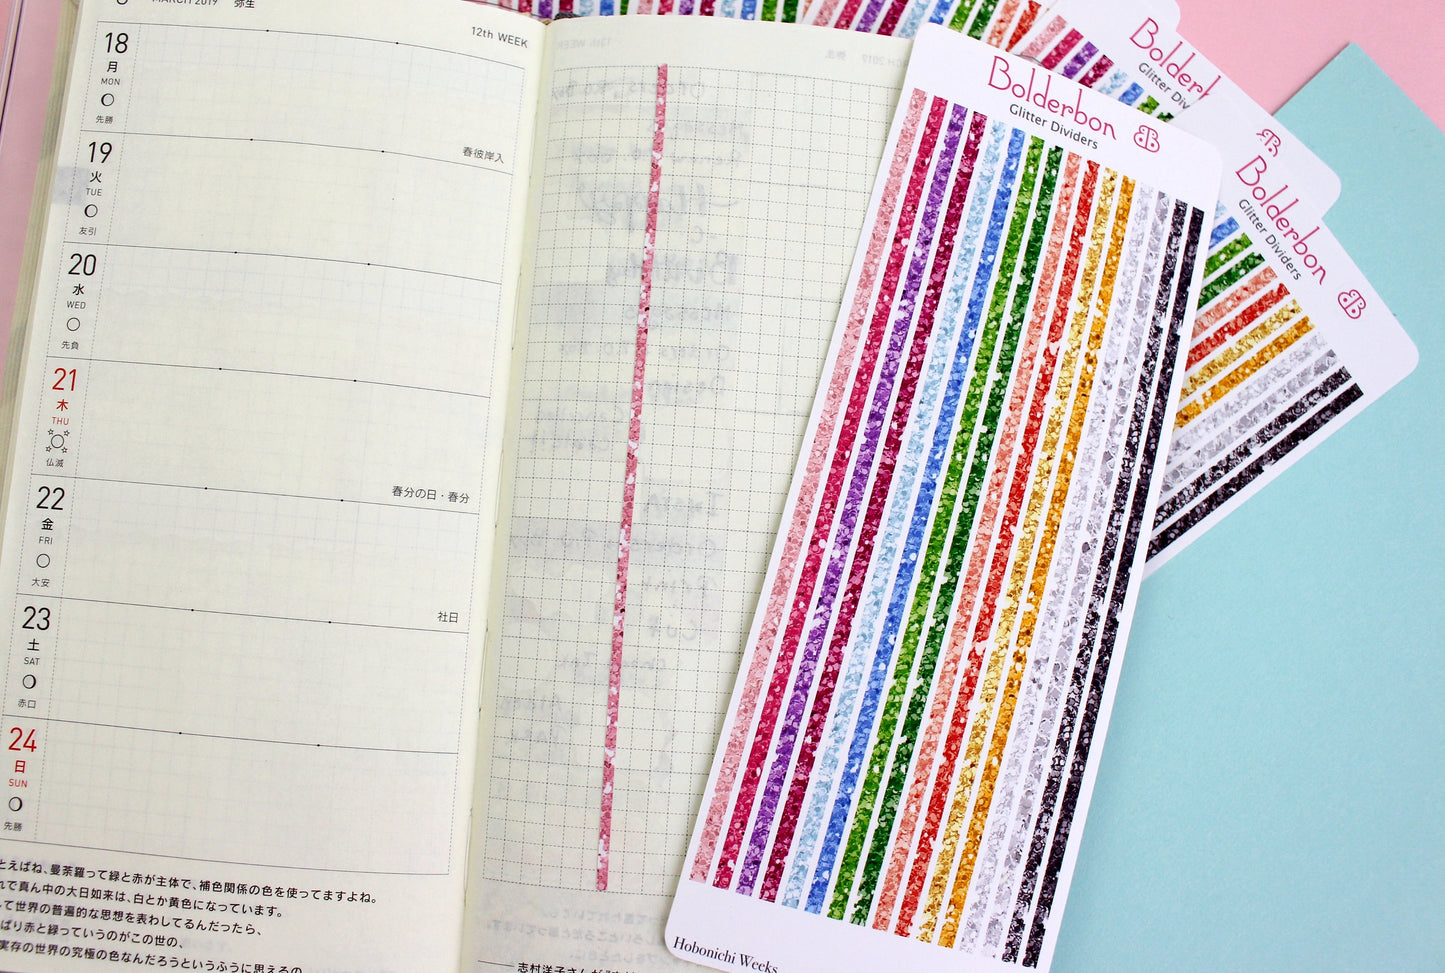 MARCH 2019 弥生
12th WEEK
18
月
MON
先勝
19
火
TUE
友引
春彼岸入
20
水
WED
先負
21
木
THU
仏滅
春分の日・春分
22
金
FRI
大安
社日
23
土
SAT
赤口
24
日
SUN
先勝
とえばね、曼荼羅って緑と赤が主体で、補色関係の色を使ってますよね。
れで真ん中の大日如来は、白とか黄色になっています。
って世界の普遍的な思想を表わしてるんだったら、
ぱり赤と緑っていうのがこの世の、
実存の世界の究極の色なんだろうというふうに思えるの
志村洋子さんが
Bolderbon
Glitter Dividers
Hobonichi Weeks
Bolderbon
Glitter Dividers
Bolderb
Glitter Div